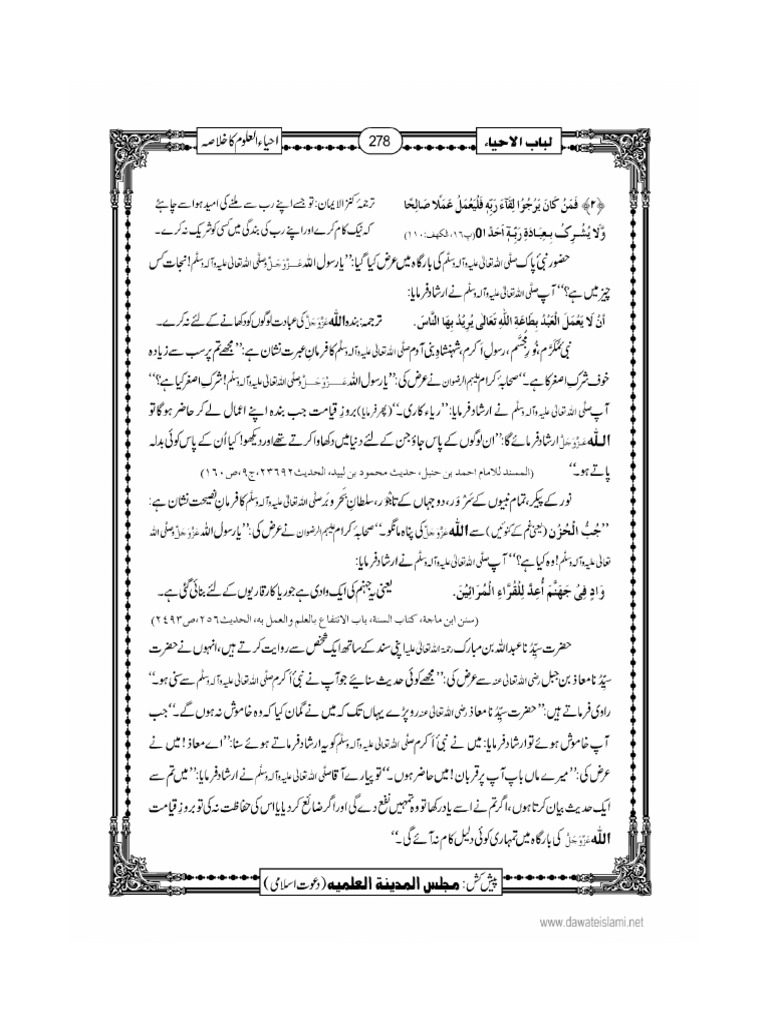 لباب الاحیاء
278
احیاء العلوم کا خلاصہ
﴿۲﴾ فَمَنْ كَانَ يَرْجُوْا لِقَآءَ رَبِّهٖ فَلْيَعْمَلْ عَمَلًا صَالِحًا وَّلَا يُشْرِكْ بِعِبَادَةِ رَبِّهٖٓ اَحَدًا0 (پ۱۶، الکھف:۱۱۰)
ترجمۂ کنز الایمان: تو جسے اپنے رب سے ملنے کی امید ہو اسے چاہئے کہ نیک کام کرے اور اپنے رب کی بندگی میں کسی کو شریک نہ کرے۔
حضور نبی ٔپاک صلَّی اللہ تعالیٰ علیہ وآلہ وسلَّم کی بارگاہ میں عرض کیا گیا: ’’یا رسول اللہ عَزَّوَجَلَّ وصلَّی اللہ تعالیٰ علیہ وآلہ وسلَّم! نجات کس
چیز میں ہے؟‘‘ آپ صلَّی اللہ تعالیٰ علیہ وآلہ وسلَّم نے ارشاد فرمایا:
اَنْ لَا يَعْمَلَ الْعَبْدُ بِطَاعَةِ اللّٰهِ تَعَالٰى يُرِيْدُ بِهَا النَّاسَ۔ ترجمہ: بندہ اللہ عَزَّوَجَلَّ کی عبادت لوگوں کو دکھانے کے لئے نہ کرے۔
نبی ٔمُکَرَّم، نُورِ مُجَسَّم، رسولِ اَکرم، شہنشاہِ بنی آدم صلَّی اللہ تعالیٰ علیہ وآلہ وسلَّم کا فرمانِ عبرت نشان ہے: ’’مجھے تم پر سب سے زیادہ
خوف شرکِ اصغر کا ہے۔‘‘ صحابۂ کرام علیہم الرضوان نے عرض کی: ’’یا رسول اللہ عَزَّوَجَلَّ وصلَّی اللہ تعالیٰ علیہ وآلہ وسلَّم! شرکِ اصغر کیا ہے؟‘‘
آپ صلَّی اللہ تعالیٰ علیہ وآلہ وسلَّم نے ارشاد فرمایا: ’’ریاء کاری۔‘‘ (پھر فرمایا) بروزِ قیامت جب بندہ اپنے اعمال لے کر حاضر ہو گا تو
اللہ عَزَّوَجَلَّ ارشاد فرمائے گا: ’’ان لوگوں کے پاس جاؤ جن کے لئے دنیا میں دکھاوا کرتے تھے اور دیکھو! کیا اُن کے پاس کوئی بدلہ
پاتے ہو۔‘‘ (المسند للامام احمد بن حنبل، حدیث محمود بن لبید، الحدیث۲۳۶۹۲، ج۹، ص۱۶۰)
نور کے پیکر، تمام نبیوں کے سَرْوَر، دو جہاں کے تاجْوَر، سلطانِ بَحر و بَر صلَّی اللہ تعالیٰ علیہ وآلہ وسلَّم کا فرمانِ نصیحت نشان ہے:
’’جُبُّ الْحُزْن (یعنی غم کے کنوئیں) سے اللہ عَزَّوَجَلَّ کی پناہ مانگو۔‘‘ صحابۂ کرام علیہم الرضوان نے عرض کی: ’’یا رسول اللہ عَزَّوَجَلَّ وصلَّی اللہ
تعالیٰ علیہ وآلہ وسلَّم! وہ کیا ہے؟‘‘ آپ صلَّی اللہ تعالیٰ علیہ وآلہ وسلَّم نے ارشاد فرمایا:
وَادٍ فِيْ جَهَنَّمَ اُعِدَّ لِلْقُرَّاءِ الْمُرَائِيْنَ۔ یعنی یہ جہنم کی ایک وادی ہے جو ریاکار قاریوں کے لئے بنائی گئی ہے۔
(سنن ابن ماجۃ، کتاب السنۃ، باب الانتفاع بالعلم والعمل بہ، الحدیث۲۵۶، ص۲۴۹۳)
حضرت سیِّدُنا عبداللہ بن مبارک رحمۃ اللہ تعالیٰ علیہ اپنی سند کے ساتھ ایک شخص سے روایت کرتے ہیں، انہوں نے حضرت
سیِّدُنا معاذ بن جبل رضی اللہ تعالیٰ عنہ سے عرض کی: ’’مجھے کوئی حدیث سنائیے جو آپ نے نبی ٔاَکرم صلَّی اللہ تعالیٰ علیہ وآلہ وسلَّم سے سنی ہو۔‘‘
راوی فرماتے ہیں: ’’حضرت سیِّدُنا معاذ رضی اللہ تعالیٰ عنہ رو پڑے یہاں تک کہ میں نے گمان کیا کہ وہ خاموش نہ ہوں گے۔‘‘ جب
آپ خاموش ہوئے تو ارشاد فرمایا: میں نے نبی ٔاَکرم صلَّی اللہ تعالیٰ علیہ وآلہ وسلَّم کو یہ ارشاد فرماتے ہوئے سنا: ’’اے معاذ! میں نے
عرض کی: ’’میرے ماں باپ آپ پر قربان! میں حاضر ہوں۔‘‘ تو پیارے آقا صلَّی اللہ تعالیٰ علیہ وآلہ وسلَّم نے ارشاد فرمایا: ’’میں تم سے
ایک حدیث بیان کرتا ہوں، اگر تم نے اسے یاد رکھا تو وہ تمہیں نفع دے گی اور اگر ضائع کر دیا یا اس کی حفاظت نہ کی تو بروزِ قیامت
اللہ عَزَّوَجَلَّ کی بارگاہ میں تمہاری کوئی دلیل کام نہ آئے گی۔‘‘
پیش کش: مجلس المدینۃ العلمیہ (دعوت اسلامی)
www.dawateislami.net